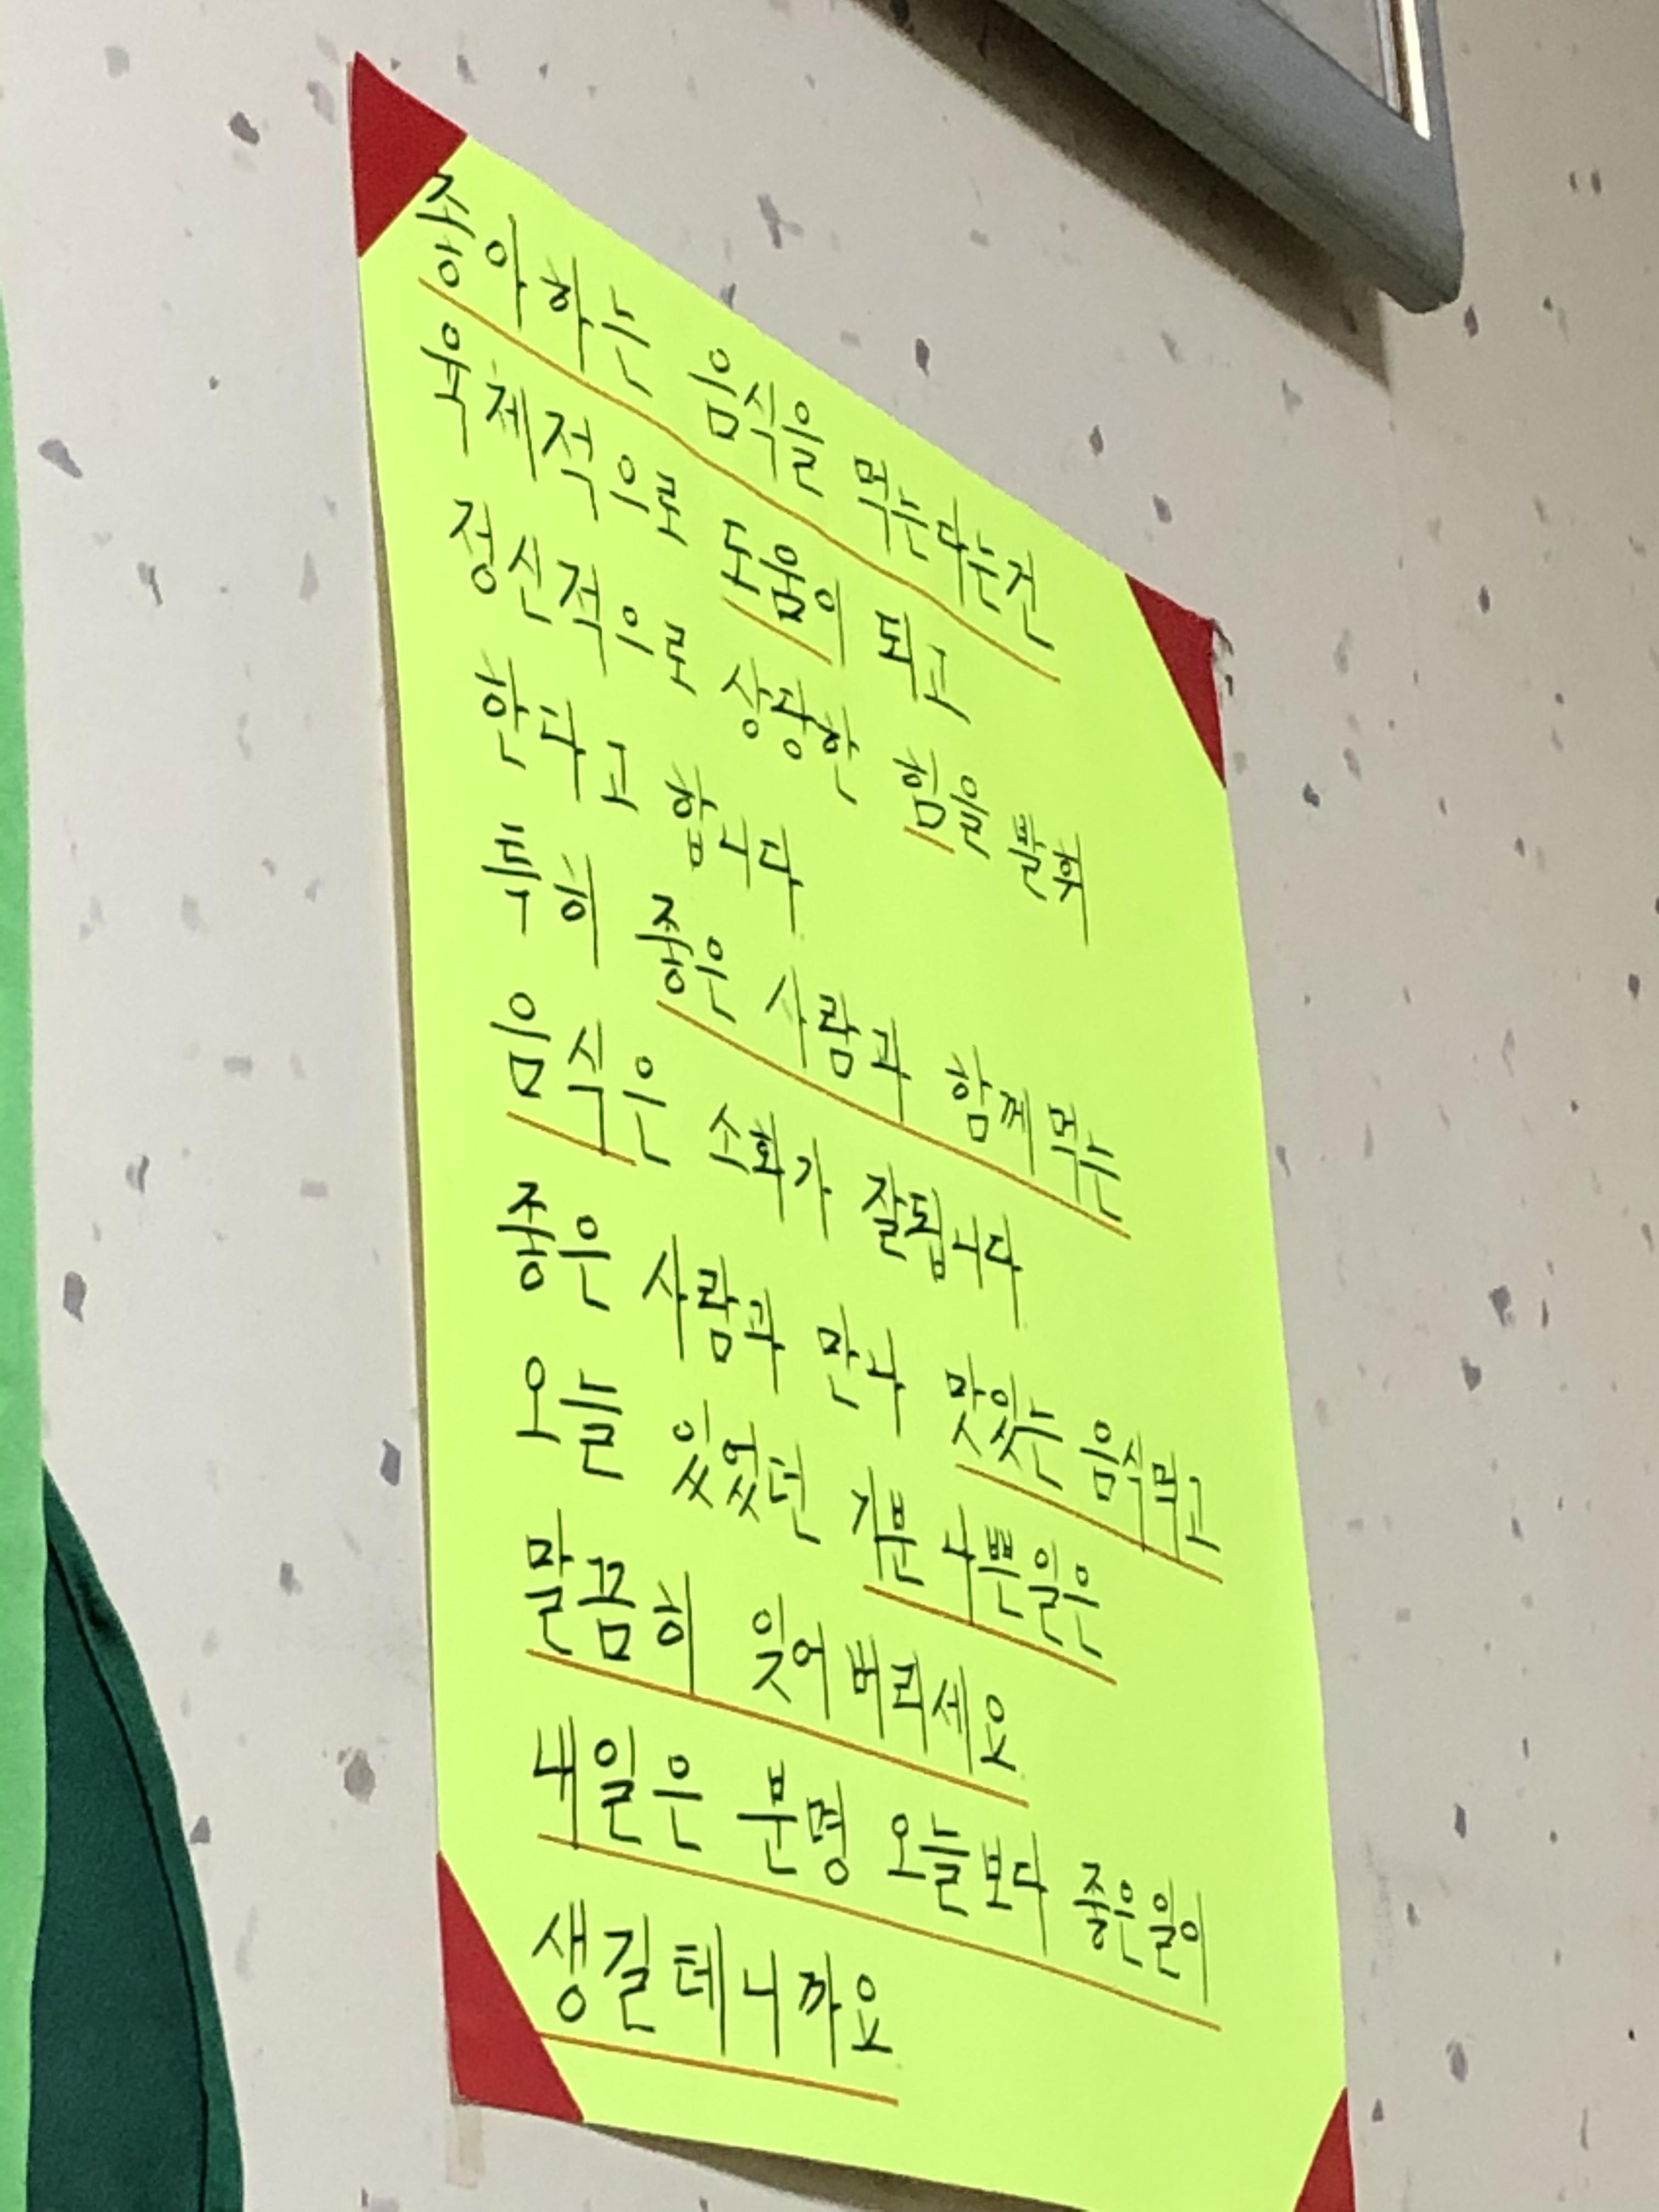 좋아하는 음식을 먹는다는건
육체적으로 도움이 되고
정신적으로 상당한 힘을 발휘
한다고 합니다
특히 좋은 사람과 함께 먹는
음식은 소화가 잘됩니다
좋은 사람과 만나 맛있는 음식먹고
오늘 있었던 기분 나쁜일은
말끔히 잊어버리세요
내일은 분명 오늘보다 좋은일이
생길테니까요